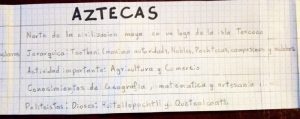 AZTECAS
Norte de la civilización maya en un lago de la isla Texcoco
Jerarquica: Tlatoani (maxima autoridad), Nobles, Pochtecas, campesinos y
Actividad importante: Agricultura y Comercio
Conocimientos de Geografia, matematica y artesania
Politeistas: Dioses: Huitzilopochtli y Quetzalcoatl